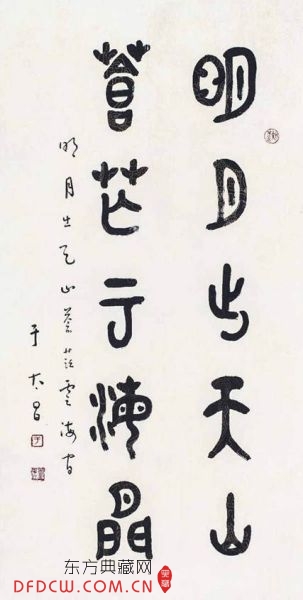 明月出天山
蒼茫云海間
明月出天山蒼茫雲海間
于太昌
东方典藏网
DFDCW.COM.CN